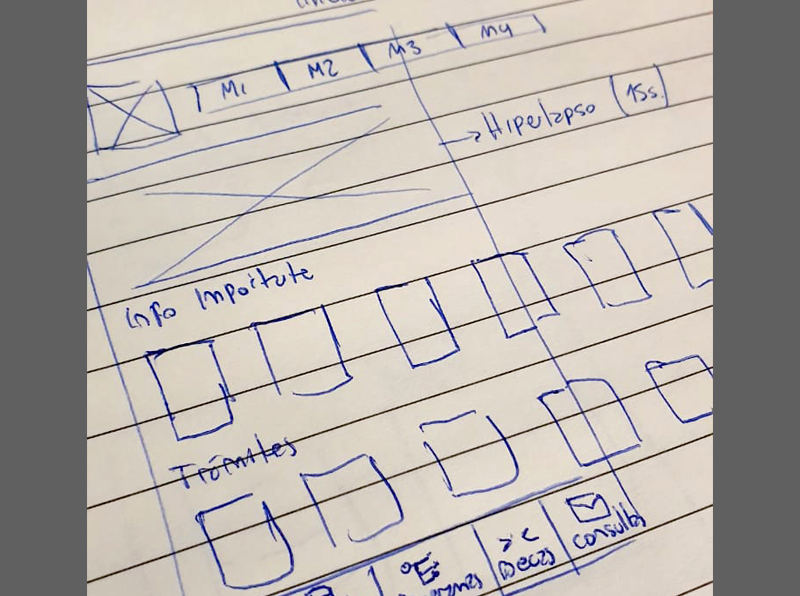 M1 M2 M3 M4
Hiperlapso (15s.)
Info Importate
Trámites
Becas
consultas